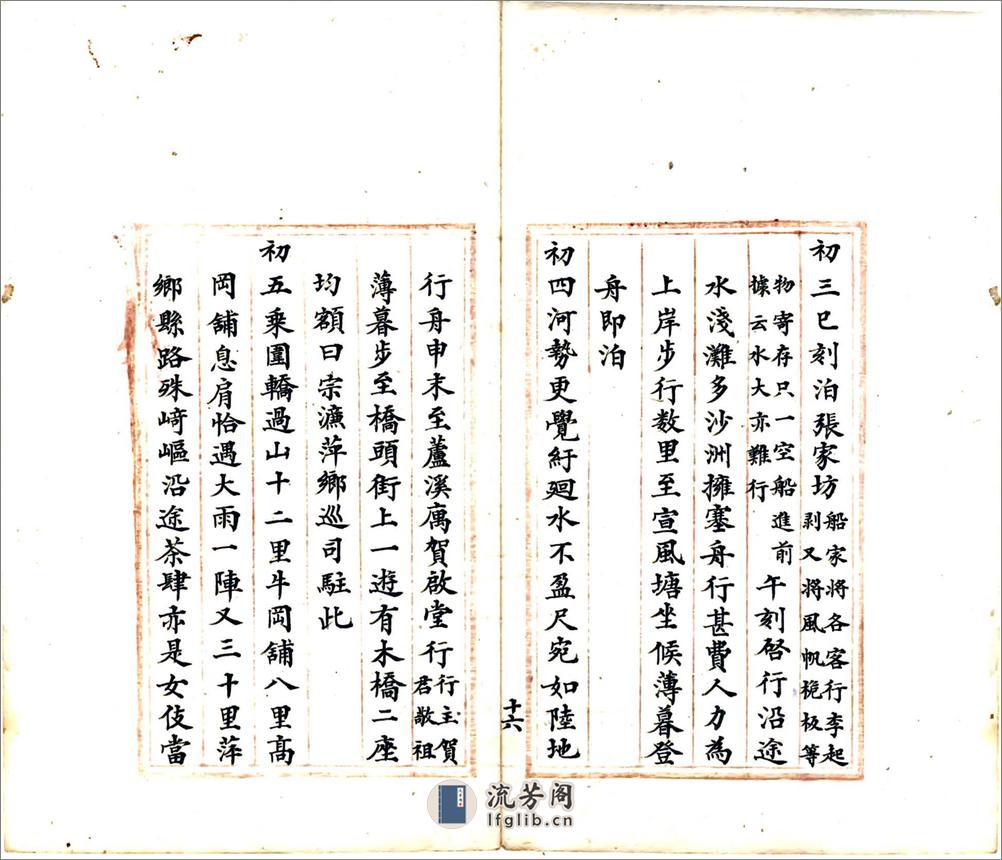 初三巳刻泊張家坊船家將各客行李起
剥又將風帆桅板等
物寄存只一空船進前
據云水大亦難行午刻啓行沿途
水淺灘多沙洲擁塞舟行甚費人力為
上岸步行数里至宣風塘坐候薄暮登
舟即泊
初四河勢更覺紆廻水不盈尺宛如陸地
十六
行舟申末至蘆溪寓賀啟堂行行主賀
君敬祖
薄暮步至橋頭街上一遊有木橋二座
均額曰宗濂萍鄉巡司駐此
初五乘圍轎過山十二里牛岡舖八里髙
岡舖息肩恰遇大雨一陣又三十里萍
鄉縣路殊﨑嶇沿途茶肆亦是女伎當
流芳阁
lfglib.cn